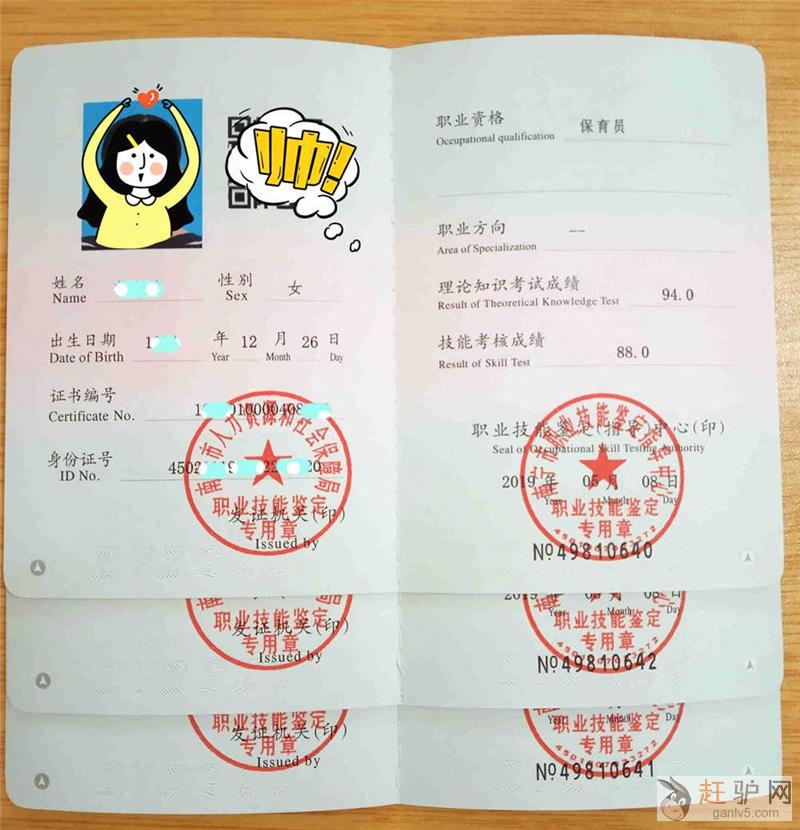 帅!
姓名
Name
性别
Sex
女
出生日期
Date of Birth
1
年
Year
12
月
Month
26
日
Day
证书编号
Certificate No.
1 010000408
身份证号
ID No.
4502
20
南宁市人力资源和社会保障局
职业技能鉴定
专用章
发证机关(印)
Issued by
职业资格
Occupational qualification
保育员
职业方向
Area of Specialization
--
理论知识考试成绩
Result of Theoretical Knowledge Test
94.0
技能考核成绩
Result of Skill Test
88.0
职业技能鉴定(指导)中心(印)
Seal of Occupational Skill Testing Authority
2019 年 05 月 08 日
Year Month Day
职业技能鉴定
专用章
№49810640
职业技能鉴定
专用章
发证机关(印)
Issued by
2019 年 05 月 08 日
Year Month Day
职业技能鉴定
专用章
№49810642
职业技能鉴定
专用章
发证机关(印)
Issued by
Year Month Day
职业技能鉴定
专用章
№49810641
赶驴网
ganlv5.com